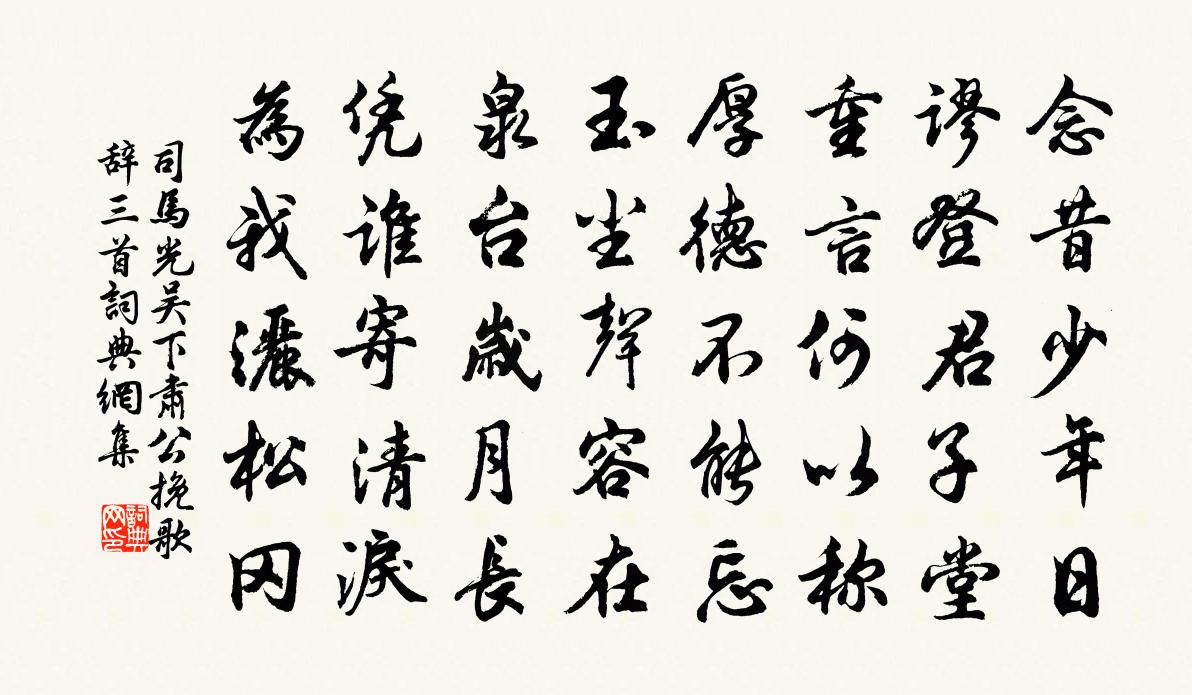 念昔少年日
谬登君子堂
重言何以称
厚德不能忘
玉尘聲容在
泉台歲月長
凭谁寄清淚
為我灑松冈
司馬光吴下肅公挽歌
辞三首詞典網集
詞典网印